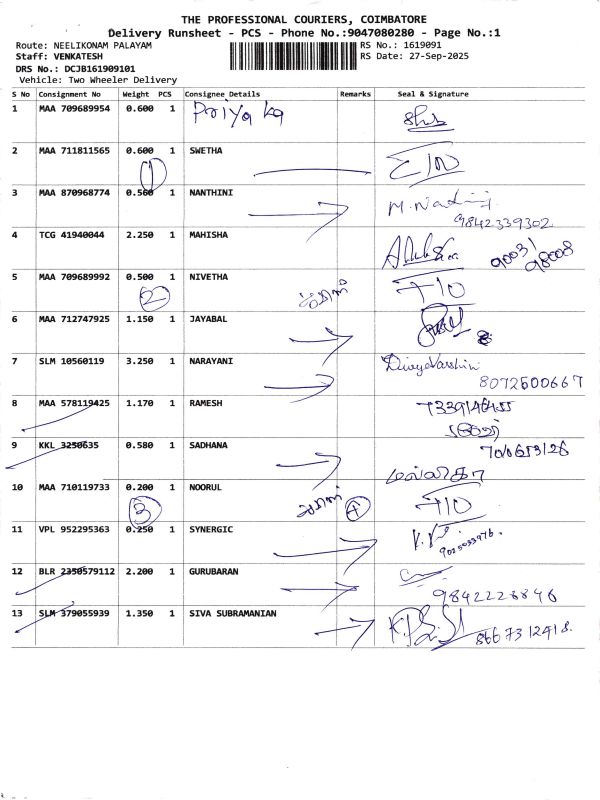 THE PROFESSIONAL COURIERS, COIMBATORE
Delivery Runsheet - PCS - Phone No.:9047080280 - Page No.:1
Route: NEELIKONAM PALAYAM RS No.: 1619091
Staff: VENKATESH RS Date: 27-Sep-2025
DRS No.: DCJB161909101
Vehicle: Two Wheeler Delivery
S No Consignment No Weight PCS Consignee Details Remarks Seal & Signature
1 MAA 709689954 0.600 1 Priya ka
2 MAA 711811565 0.600 1 SWETHA
1
3 MAA 870968774 0.560 1 NANTHINI M. Nadini
9842339302
4 TCG 41940044 2.250 1 MAHISHA 90031
98008
5 MAA 709689992 0.500 1 NIVETHA
2
6 MAA 712747925 1.150 1 JAYABAL
7 SLM 10560119 3.250 1 NARAYANI DivyaVarshini
8072500667
8 MAA 578119425 1.170 1 RAMESH
9 KKL 3250635 0.580 1 SADHANA
மல்லிகா
10 MAA 710119733 0.200 1 NOORUL
3 4
11 VPL 952295363 0.250 1 SYNERGIC
12 BLR 2350579112 2.200 1 GURUBARAN
9842228846
13 SLM 379055939 1.350 1 SIVA SUBRAMANIAN 8667312418.